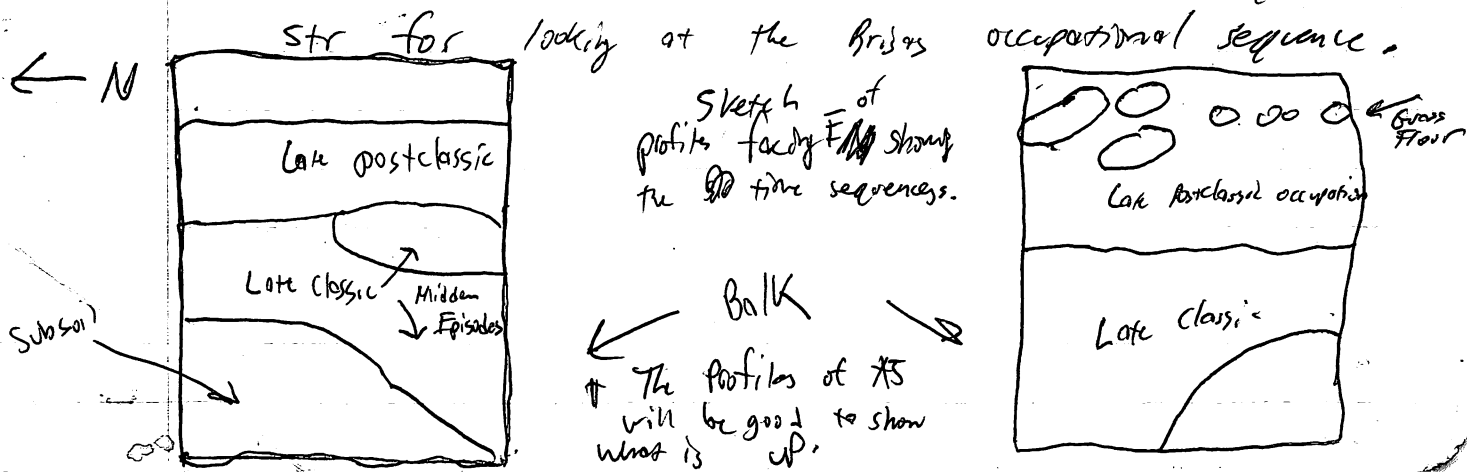 Str for looking at the Brisas occupational sequence.
← N
Late postclassic
Late Classic
Midden
Episodes
Subsoil
Sketch of
profiles facing E showing
the time sequences.
Balk
The Profiles of
will be good to show
what is up.
Grass
Floor
Late Postclassic occupation
Late Classic